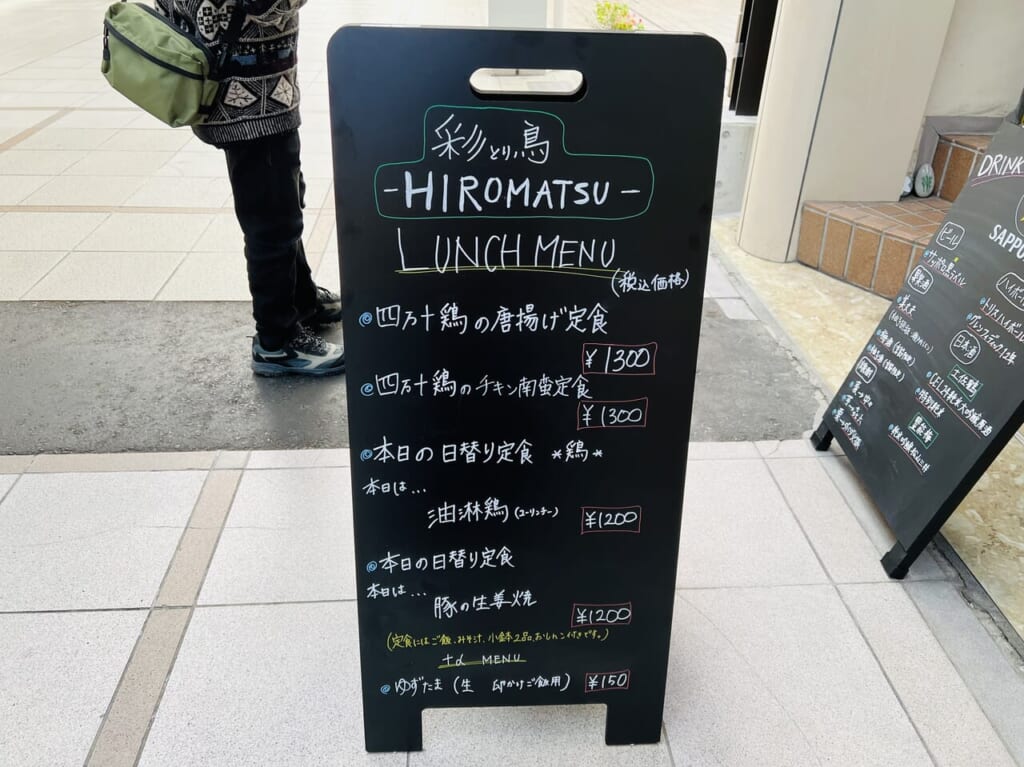 彩とり鳥
-HIROMATSU-
LUNCH MENU
(税込価格)
◎四万十鶏の唐揚げ定食
¥1300
◎四万十鶏のチキン南蛮定食
¥1300
◎本日の日替り定食 *鶏*
本日は...
油淋鶏(ユーリンチー)
¥1200
◎本日の日替り定食
本日は...
豚の生姜焼
¥1200
(定食にはご飯、みそ汁、小鉢2品、おしんこ付きです。)
+α MENU
◎ゆずたま(生 卵かけご飯用) ¥150
DRINK
SAPPO
ビール
サッポロ黒ラベル
果実酒
ハイボー
トリスハイボール
グレンフィディック12年
日本酒
土佐鶴
特別純米